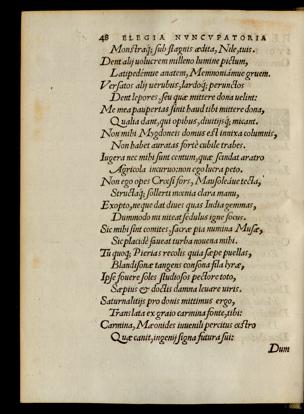 48 ELEGIA NVNCVPATORIA
Monstraq́; sub stagnis ædita, Nile, tuis.
Dent alij uolucrem milleno lumine pictum,
Latipedémue anatem, Memnoniámue gruem.
Versatos alij uerubus, lardoq́; perunctos
Dent lepores, seu quæ mittere dona uelint:
Me mea paupertas sinit haud tibi mittere dona,
Qualia dant, qui opibus, diuitijsq́; micant.
Non mihi Mygdoneis domus est innixa columnis,
Non habet auratas fortè cubile trabes.
Iugera nec mihi sunt centum, quæ scindat aratro
Agricola incuruo: non ego lucra peto.
Non ego opes Crœsi fors, Mausoleiue tecta,
Structaq́; sollerti mœnia clara manu,
Exopto, neque dat diues quas India gemmas,
Dummodo mi niteat sedulus igne focus.
Sic mihi sint comites, sacræ pia numina Musæ,
Sic placidè faueat turba nouena mihi.
Tu quoq́; Pierias recolis quia sæpe puellas,
Blandisonæ tangens consona fila lyræ,
Ipse fouere soles studiosos pectore toto,
Sæpius & doctis damna leuare uiris.
Saturnalitijs pro donis mittimus ergo,
Translata ex graio carmina fonte, tibi:
Carmina, Mæonides iuuenili percitus œstro
Quæ canit, ingenij signa futura sui:
Dum